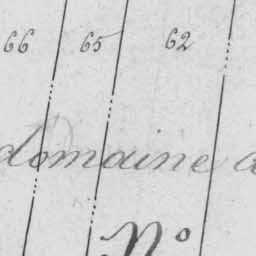 66 65 62
domaine
N°